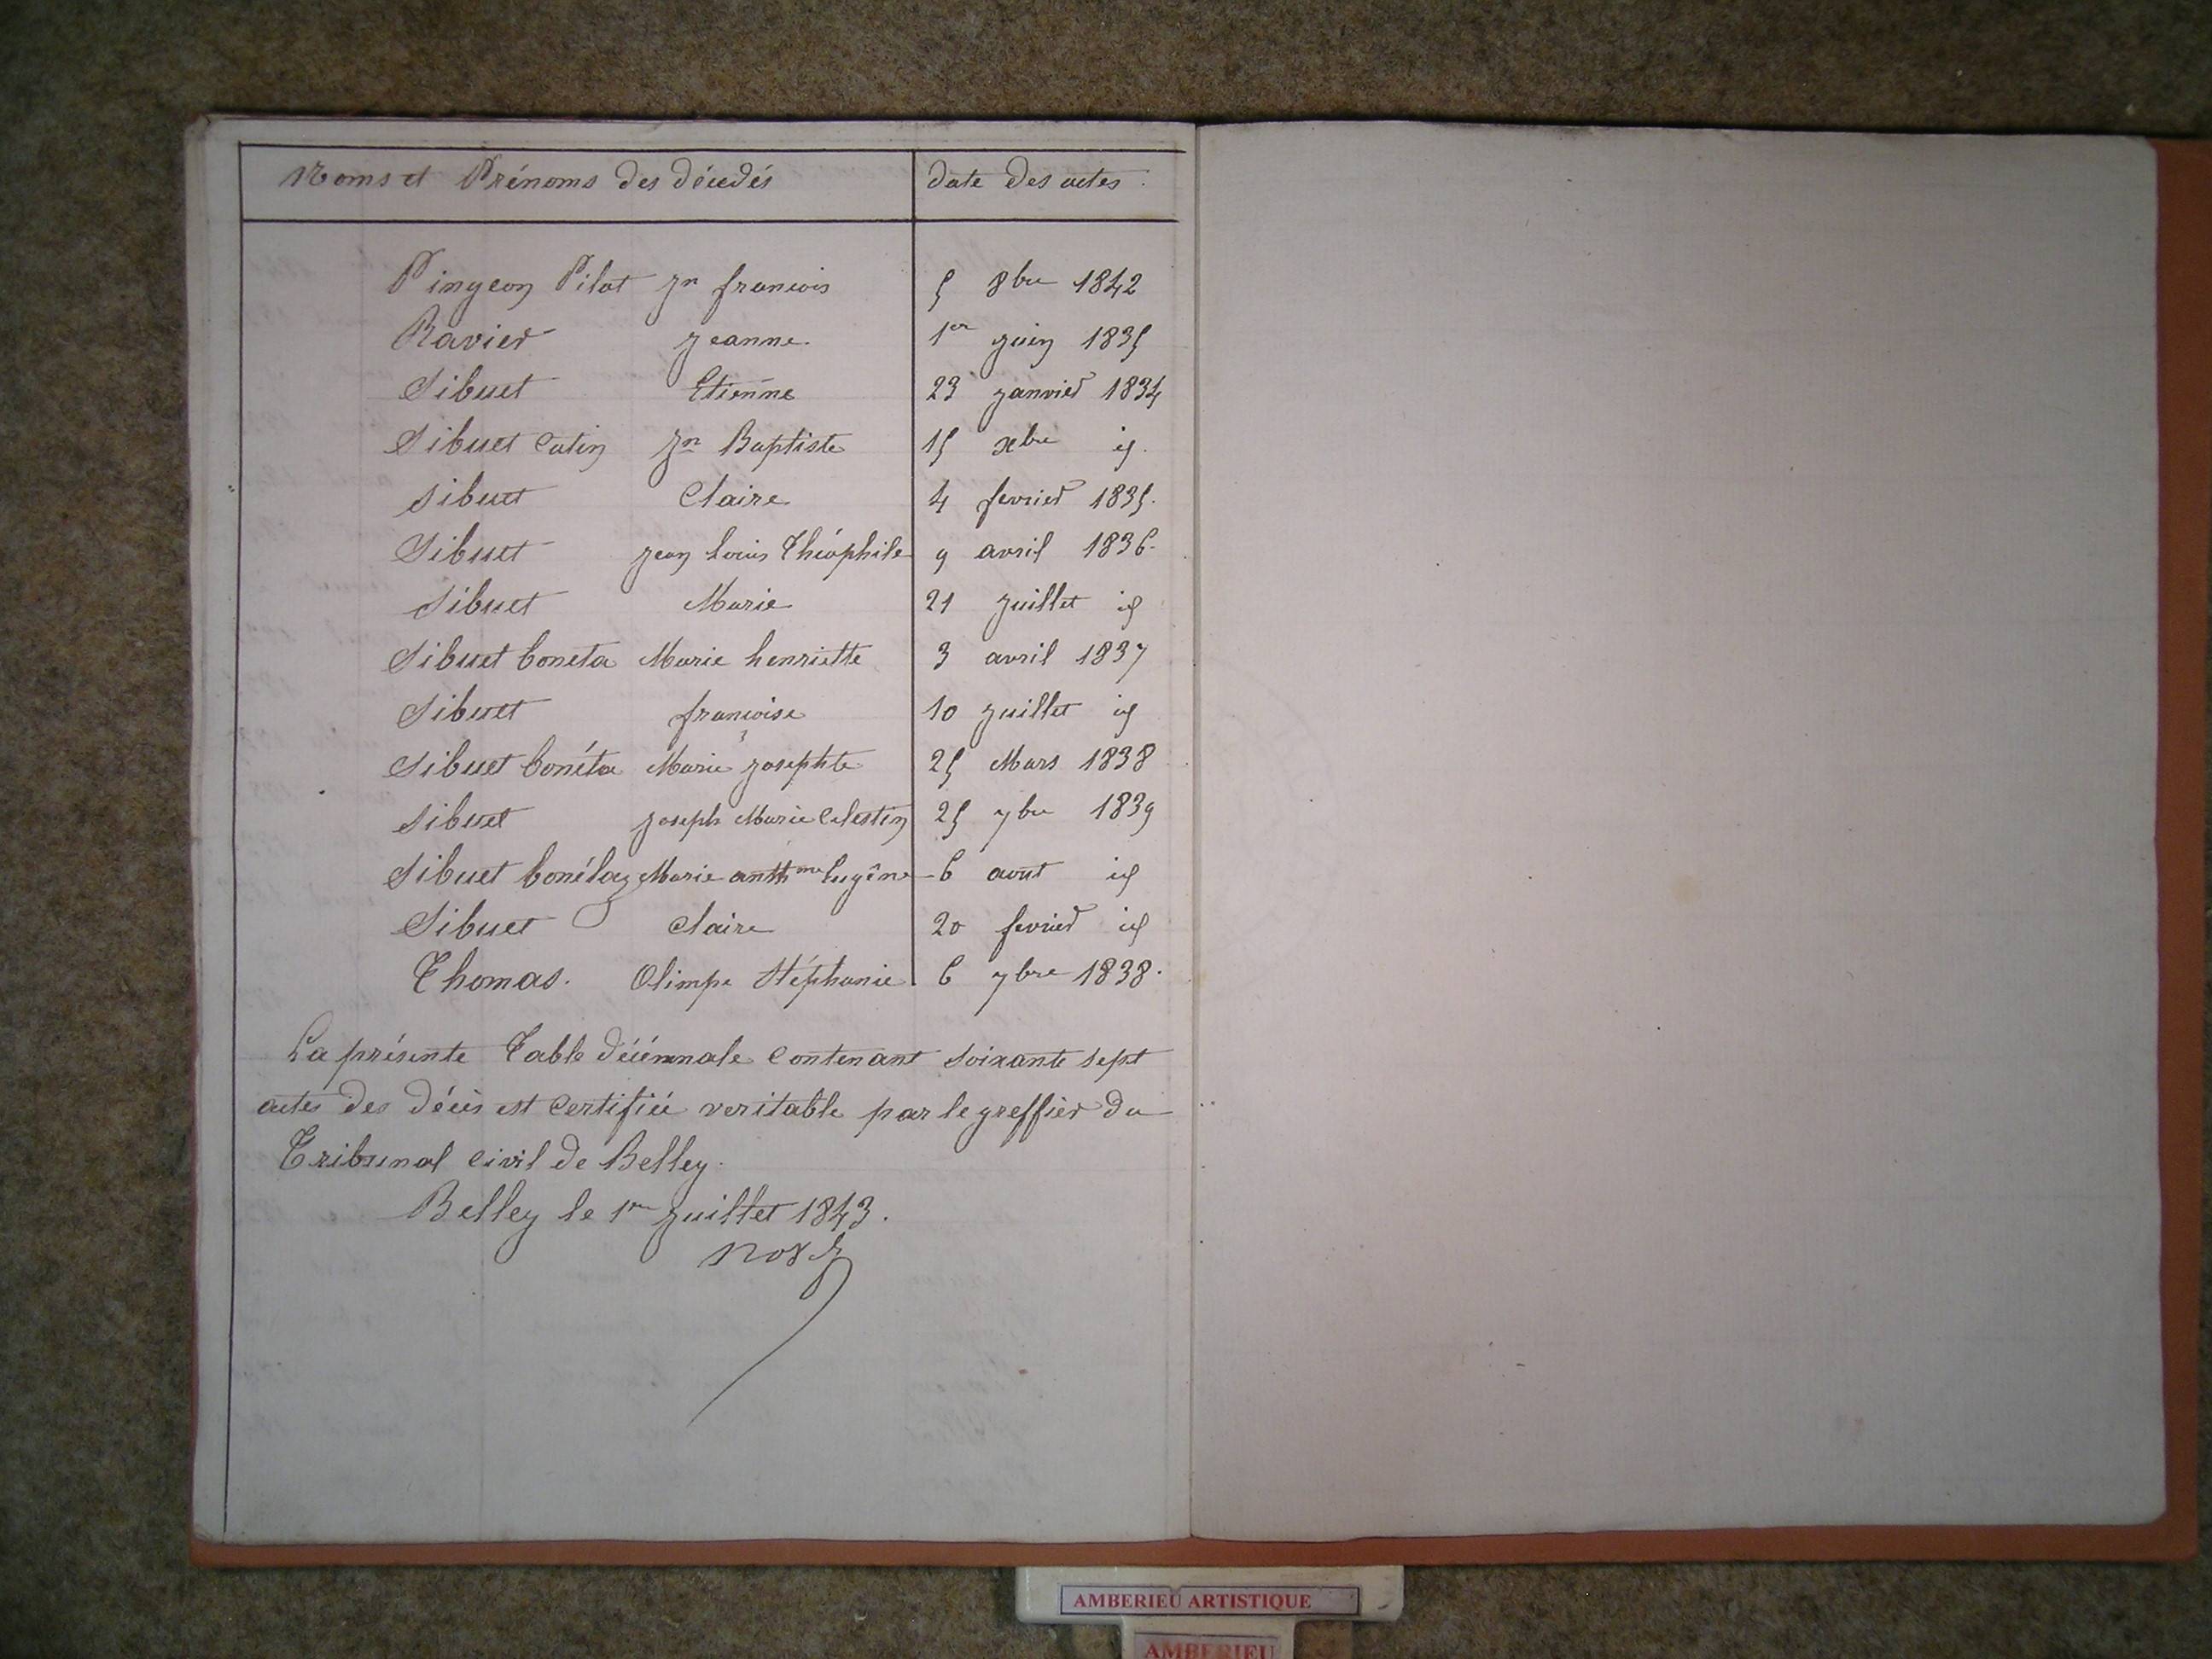 Noms et Prénoms des décédés date des actes.
Pingeon Pilat Jn francois 5 8bre 1842
Ravier Jeanne. 1er juin 1835
Sibuet Etienne 23 janvier 1834
Sibuet Catin Jn Baptiste 15 xbre id.
Sibuet Claire 4 fevrier 1835.
Sibuet Jean Louis Théophile 9 avril 1836.
Sibuet Marie 21 juillet id
Sibuet boneta Marie henriette 3 avril 1837
Sibuet francoise 10 juillet id
Sibuet bonéta Marie josephte 25 Mars 1838
Sibuet joseph Marie Celestin 25 7bre 1839
Sibuet Marie Eugêne 6 aout id
Sibuet Claire 20 fevrier id
Thomas. Olimpe Stéphanie 6 7bre 1838.
La présente Table décénnale contenant soixante sept
actes des décès est certifiée veritable par le greffier du
Tribunal civil de Belley.
Belley le 1er juillet 1843.
AMBERIEU ARTISTIQUE
AMBERIEU